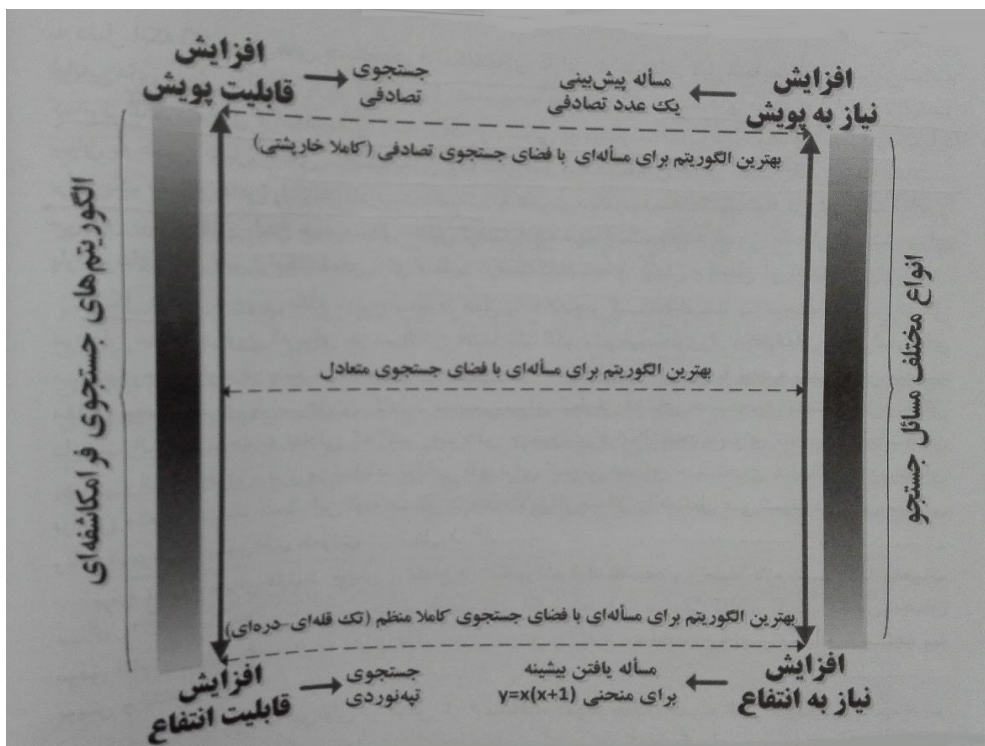 افزایش
نیاز به پویش
مسأله پیش‌بینی
یک عدد تصادفی
جستجوی
تصادفی
افزایش
قابلیت پویش
بهترین الگوریتم برای مسأله‌ای با فضای جستجوی تصادفی (کاملا خارپشتی)
انواع مختلف مسائل جستجو
بهترین الگوریتم برای مسأله‌ای با فضای جستجوی متعادل
الگوریتم‌های جستجوی فرامکاشفه‌ای
بهترین الگوریتم برای مسأله‌ای با فضای جستجوی کاملا منظم (تک قله‌ای-دره‌ای)
افزایش
نیاز به انتفاع
مسأله یافتن بیشینه
برای منحنی y=x(x+1)
جستجوی
تپه‌نوردی
افزایش
قابلیت انتفاع